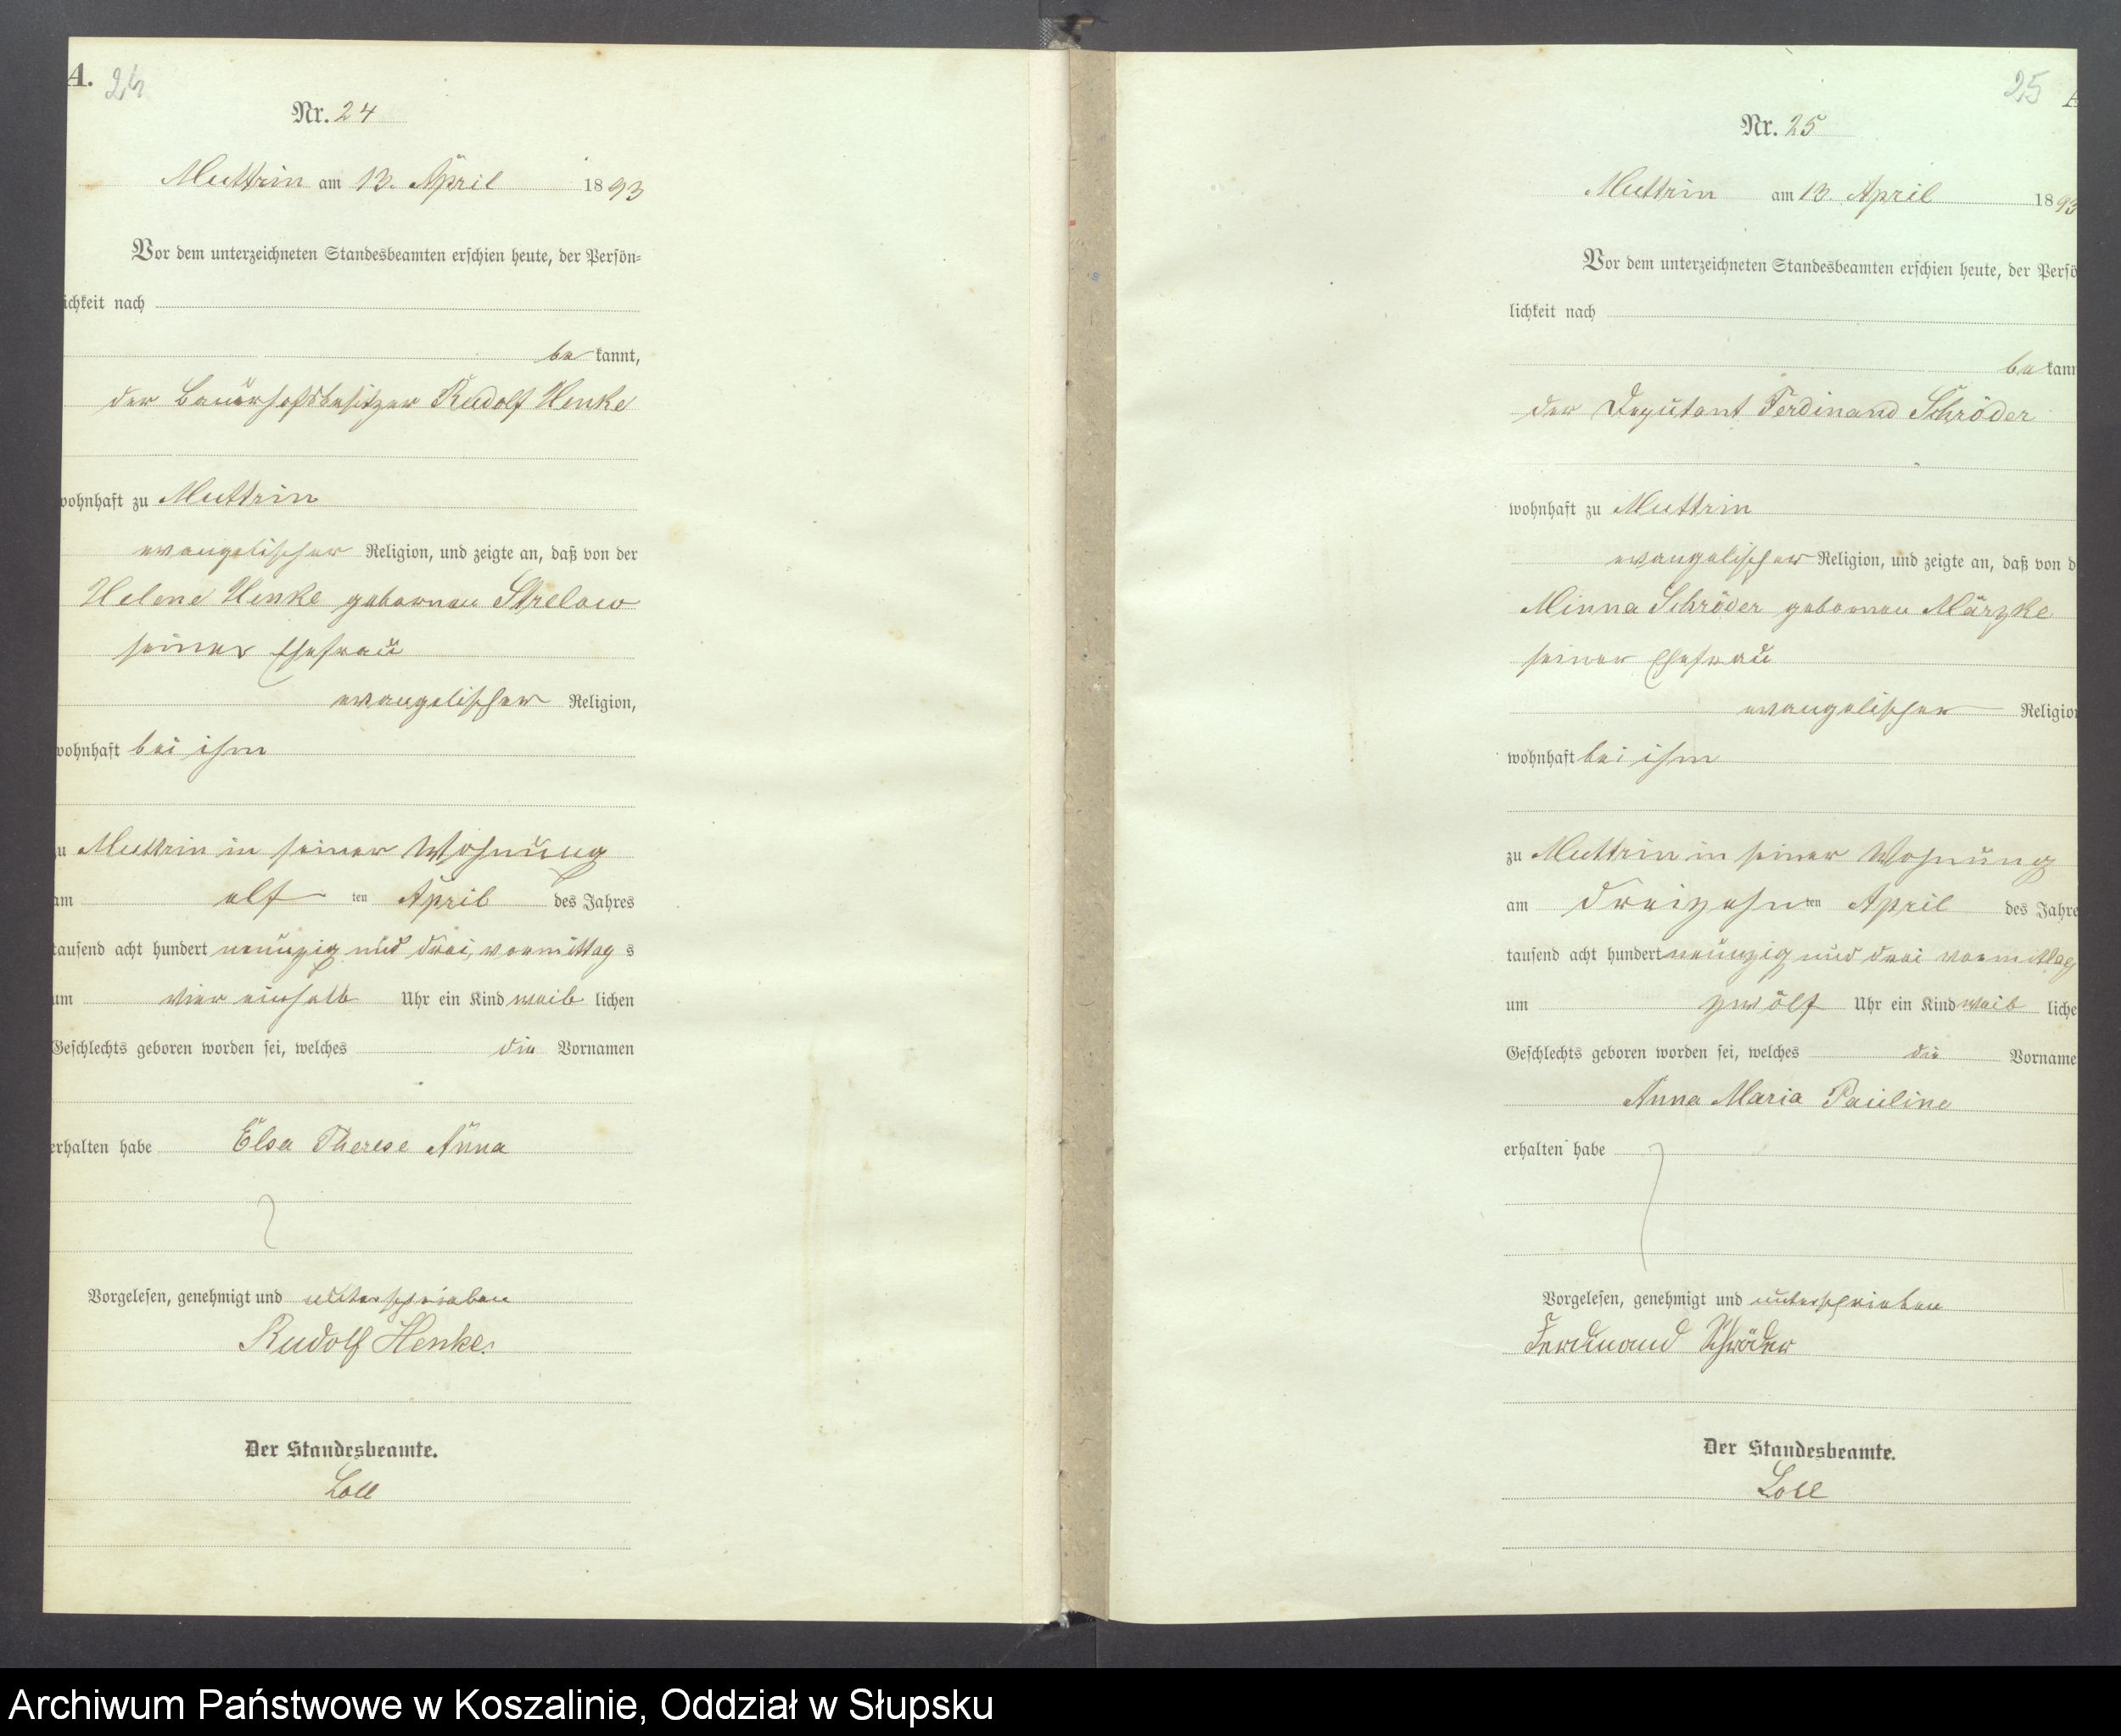 A. 24
Nr. 24
Muttrin am 13. April 1893
Vor dem unterzeichneten Standesbeamten erschien heute, der Persön-
ichkeit nach
be kannt,
der Bauerhofsbesitzer Rudolf Henke
wohnhaft zu Muttrin
evangelischer Religion, und zeigte an, daß von der
Helene Henke geborenen Strelow
seiner Ehefrau
evangelischer Religion,
wohnhaft bei ihm
zu Muttrin in seiner Wohnung
am elf ten April des Jahres
tausend acht hundert neunzig und drei, vormittag s
um vier einhalb Uhr ein Kind weib lichen
Geschlechts geboren worden sei, welches die Vornamen
erhalten habe Elsa Therese Anna
Vorgelesen, genehmigt und unterschrieben
Rudolf Henke.
Der Standesbeamte.
Loll
25
Nr. 25
Muttrin am 13. April 1893
Vor dem unterzeichneten Standesbeamten erschien heute, der Persö
lichkeit nach
be kann
der Deputant Ferdinand Schröder
wohnhaft zu Muttrin
evangelischer Religion, und zeigte an, daß von d
Minna Schröder geborenen Märzke
seiner Ehefrau
evangelischer Religion
wohnhaft bei ihm
zu Muttrin in seiner Wohnung
am dreizehn ten April des Jahre
tausend acht hundert neunzig und drei vormittag
um zwölf Uhr ein Kind weib liche
Geschlechts geboren worden sei, welches die Vorname
Anna Maria Pauline
erhalten habe
Vorgelesen, genehmigt und unterschrieben
Ferdinand Schröder
Der Standesbeamte.
Loll
Archiwum Państwowe w Koszalinie, Oddział w Słupsku